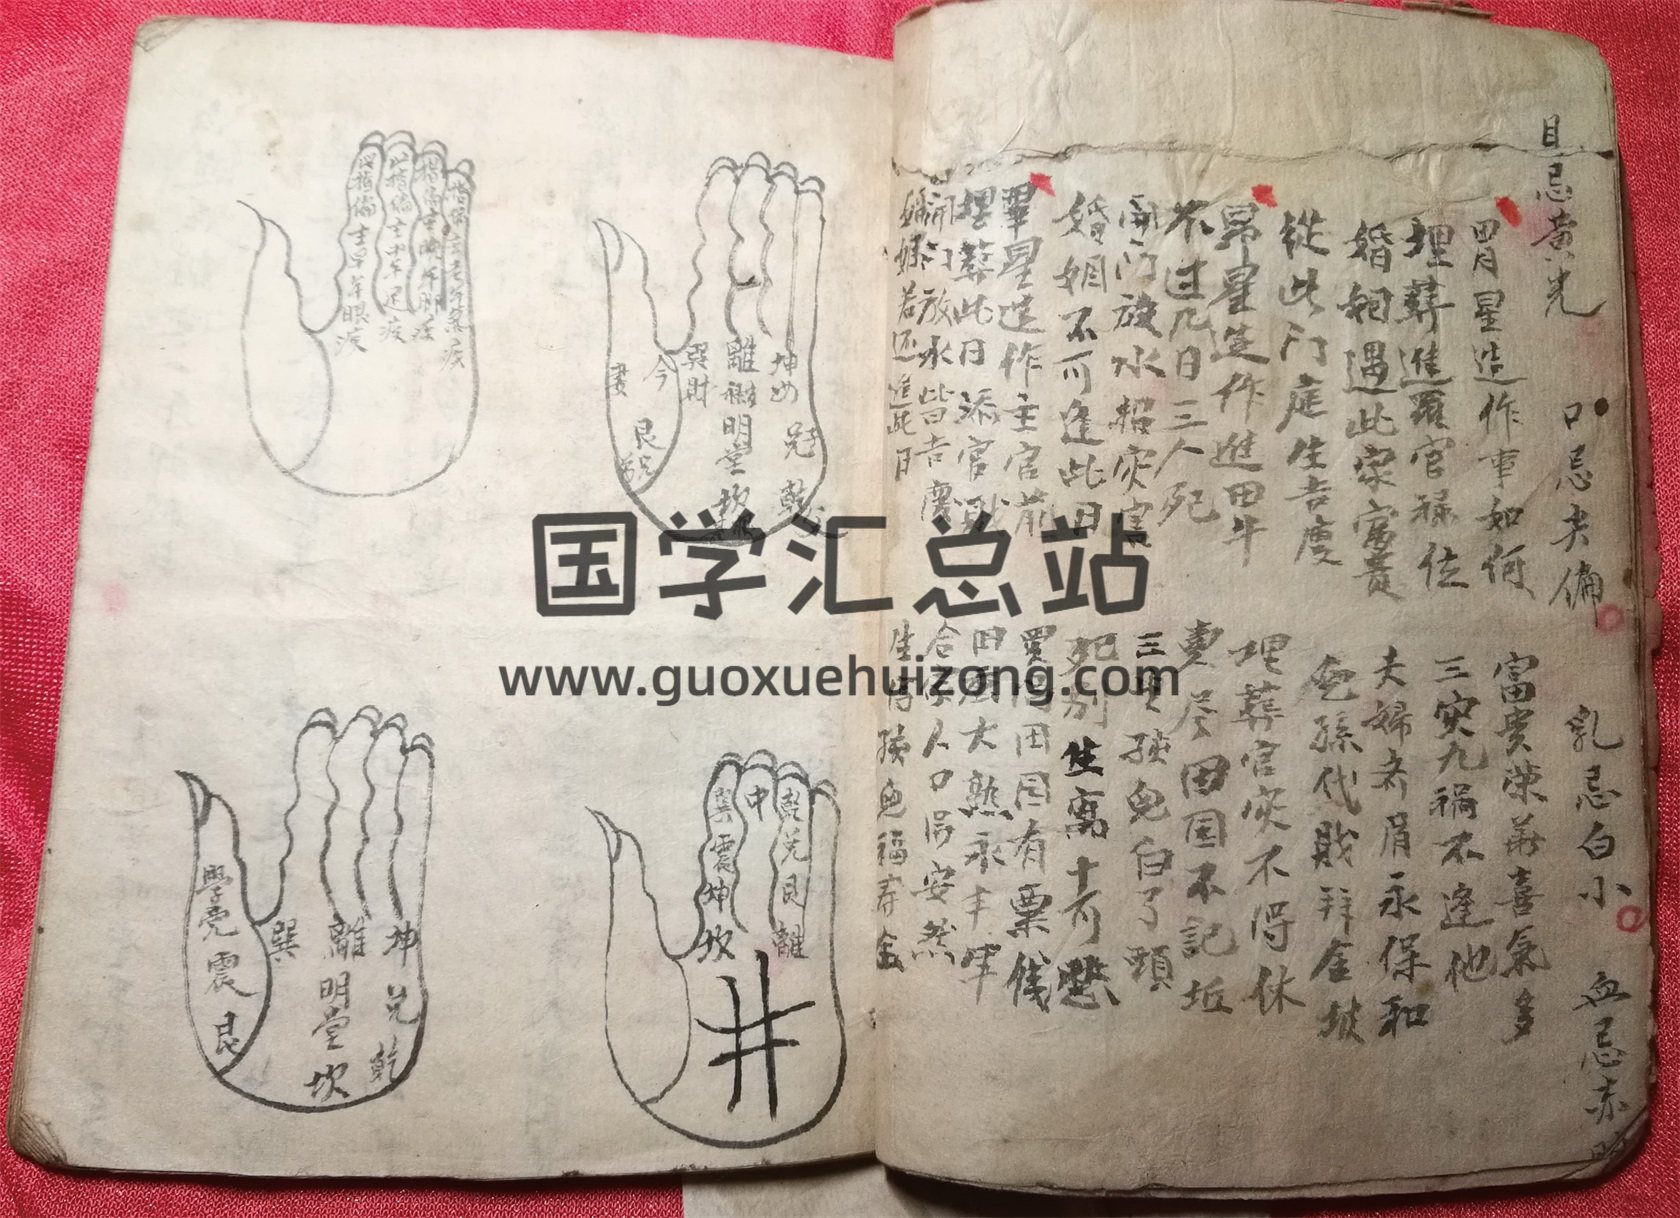 目忌黃光 口忌尖偏 乳忌白小 血忌赤
胃星造作事如何 富貴榮華喜氣多
埋葬進羅官祿位 三灾九禍不逢他
婚姻遇此家富貴 夫婦齐眉永保和
從此门庭生吉慶 兒孫代賤拜金坡
昴星造作進田牛 埋葬官灾不得休
不过几日三人死 賣尽田园不記坵
開门放水招灾害 三歲孩兒白了頭
婚姻不可逢此日 死别生离十可愁
畢星造作主官前 買得田园有粟钱
埋葬此日添官職 田蚕大熟永丰年
開门放水皆吉慶 合家人口得安然
婚姻若还進此日 生得孩兒福寿全
坤 兑 乾
離 明堂 坎
巽財
艮兄弟
妻
此指偏主早年眼疾
此指偏主中年足疾
坤 兑 乾
離 明堂 坎
巽
學堂 震 艮
乾兑艮離
中
巽震坤坎
井
国学汇总站
www.guoxuehuizong.com